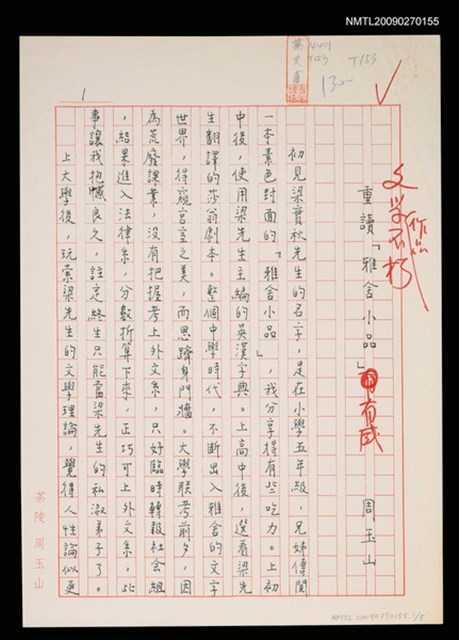 NMTL20090270155
T153
1
文學不朽
作品
重讀「雅舍小品」有感
周玉山
初見梁實秋先生的名字，是在小學五年級，兄姊傳閱
一本素色封面的「雅舍小品」，我分享得有些吃力。上初
中後，使用梁先生主編的英漢字典。上高中後，選看梁先
生翻譯的莎翁劇本。整個中學時代，不斷出入雅舍的文字
世界，得窺宮室之美，而思躋身門牆。大學聯考前夕，因
為荒廢課業，沒有把握考上外文系，只好臨時轉報社會組
，結果進入法律系，分數折算下來，正巧可上外文系，此
事讓我抱憾良久，註定終生只能當梁先生的私淑弟子了。
上大學後，玩索梁先生的文學理論，覺得人性論似更
茶陵 周玉山
NMTL20090270155.1/8